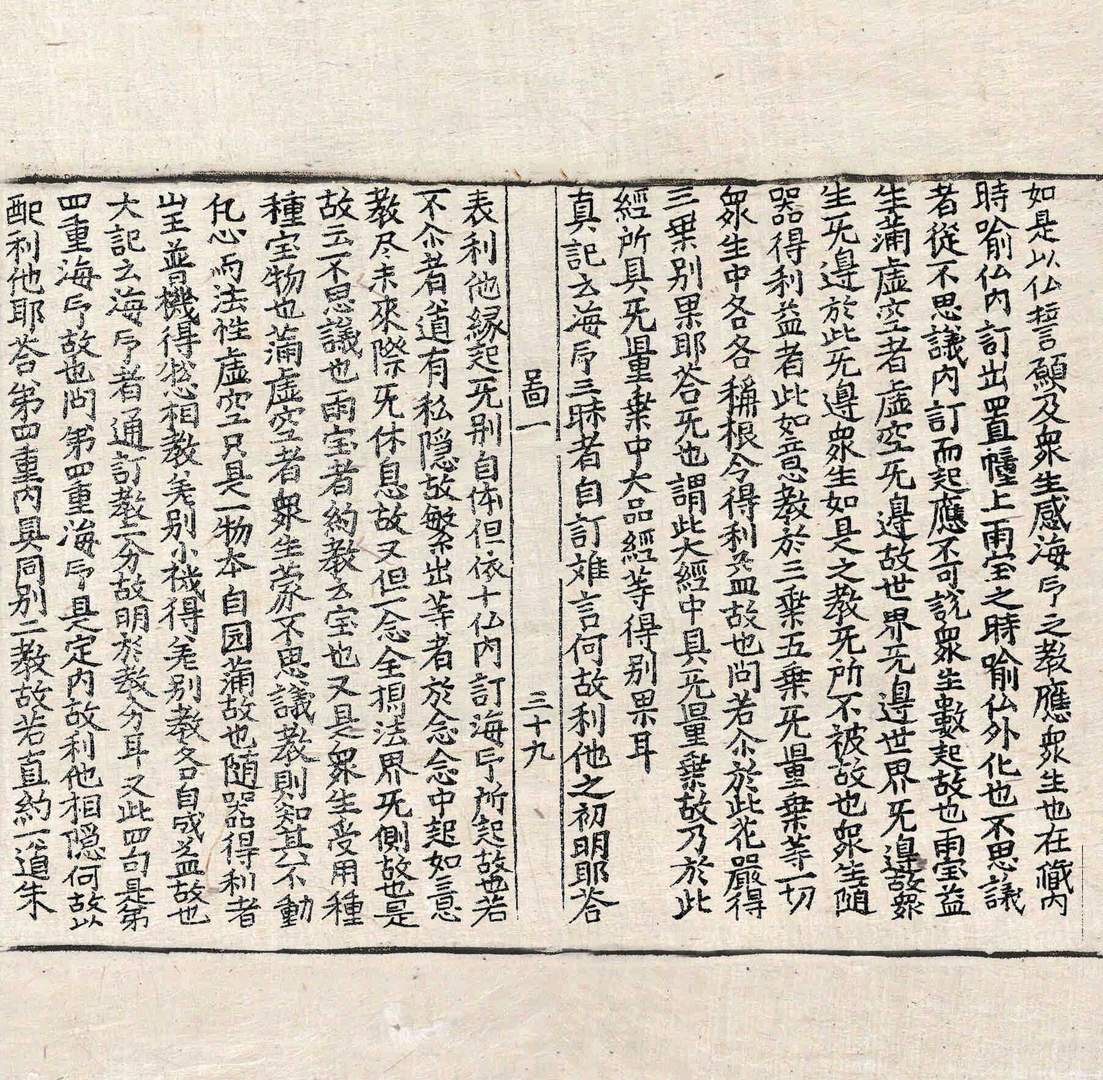 如是以仏誓願及衆生感海印之教應衆生也在藏內
時喻仏內訂出置幢上雨宝之時喻仏外化也不思議
者從不思議內訂而起應不可說衆生數起故也雨宝益
生滿虛空者虛空旡邉故世界旡邉世界旡邉故衆
生旡邉於此旡邉衆生如是之教旡所不被故也衆生随
器得利益者此如意教於三乗五乗旡量乗等一切
衆生中各各稱根令得利益故也问若尒於此花嚴得
三乗别果耶荅旡也謂此大經中具旡量乗故乃於此
經所具旡量乗中大品經等得别果耳
真記云海印三昧者自訂難言何故利他之初明耶荅
啚一 三十九
表利他縁起旡别自体但依十仏內訂海印所起故也若
不尒者道有私隠故繁出等者於念念中起如意
教尽未來際旡休息故又但一念全揭法界旡側故也是
故云不思議也雨宝者約教云宝也又是衆生受用種
種宝物也滿虛空者衆生蒙不思議教則知其不動
凡心而法性虛空只是一物本自园滿故也随器得利者
山王並普機得㧾相教差别小機得差别教各自成益故也
大記云海印者通訂教二分故明於教分耳又此四句是第
四重海印故也问第四重海印是定内故利他相隠何故以
配利他耶荅第四重內具同别二教故若直約一道朱